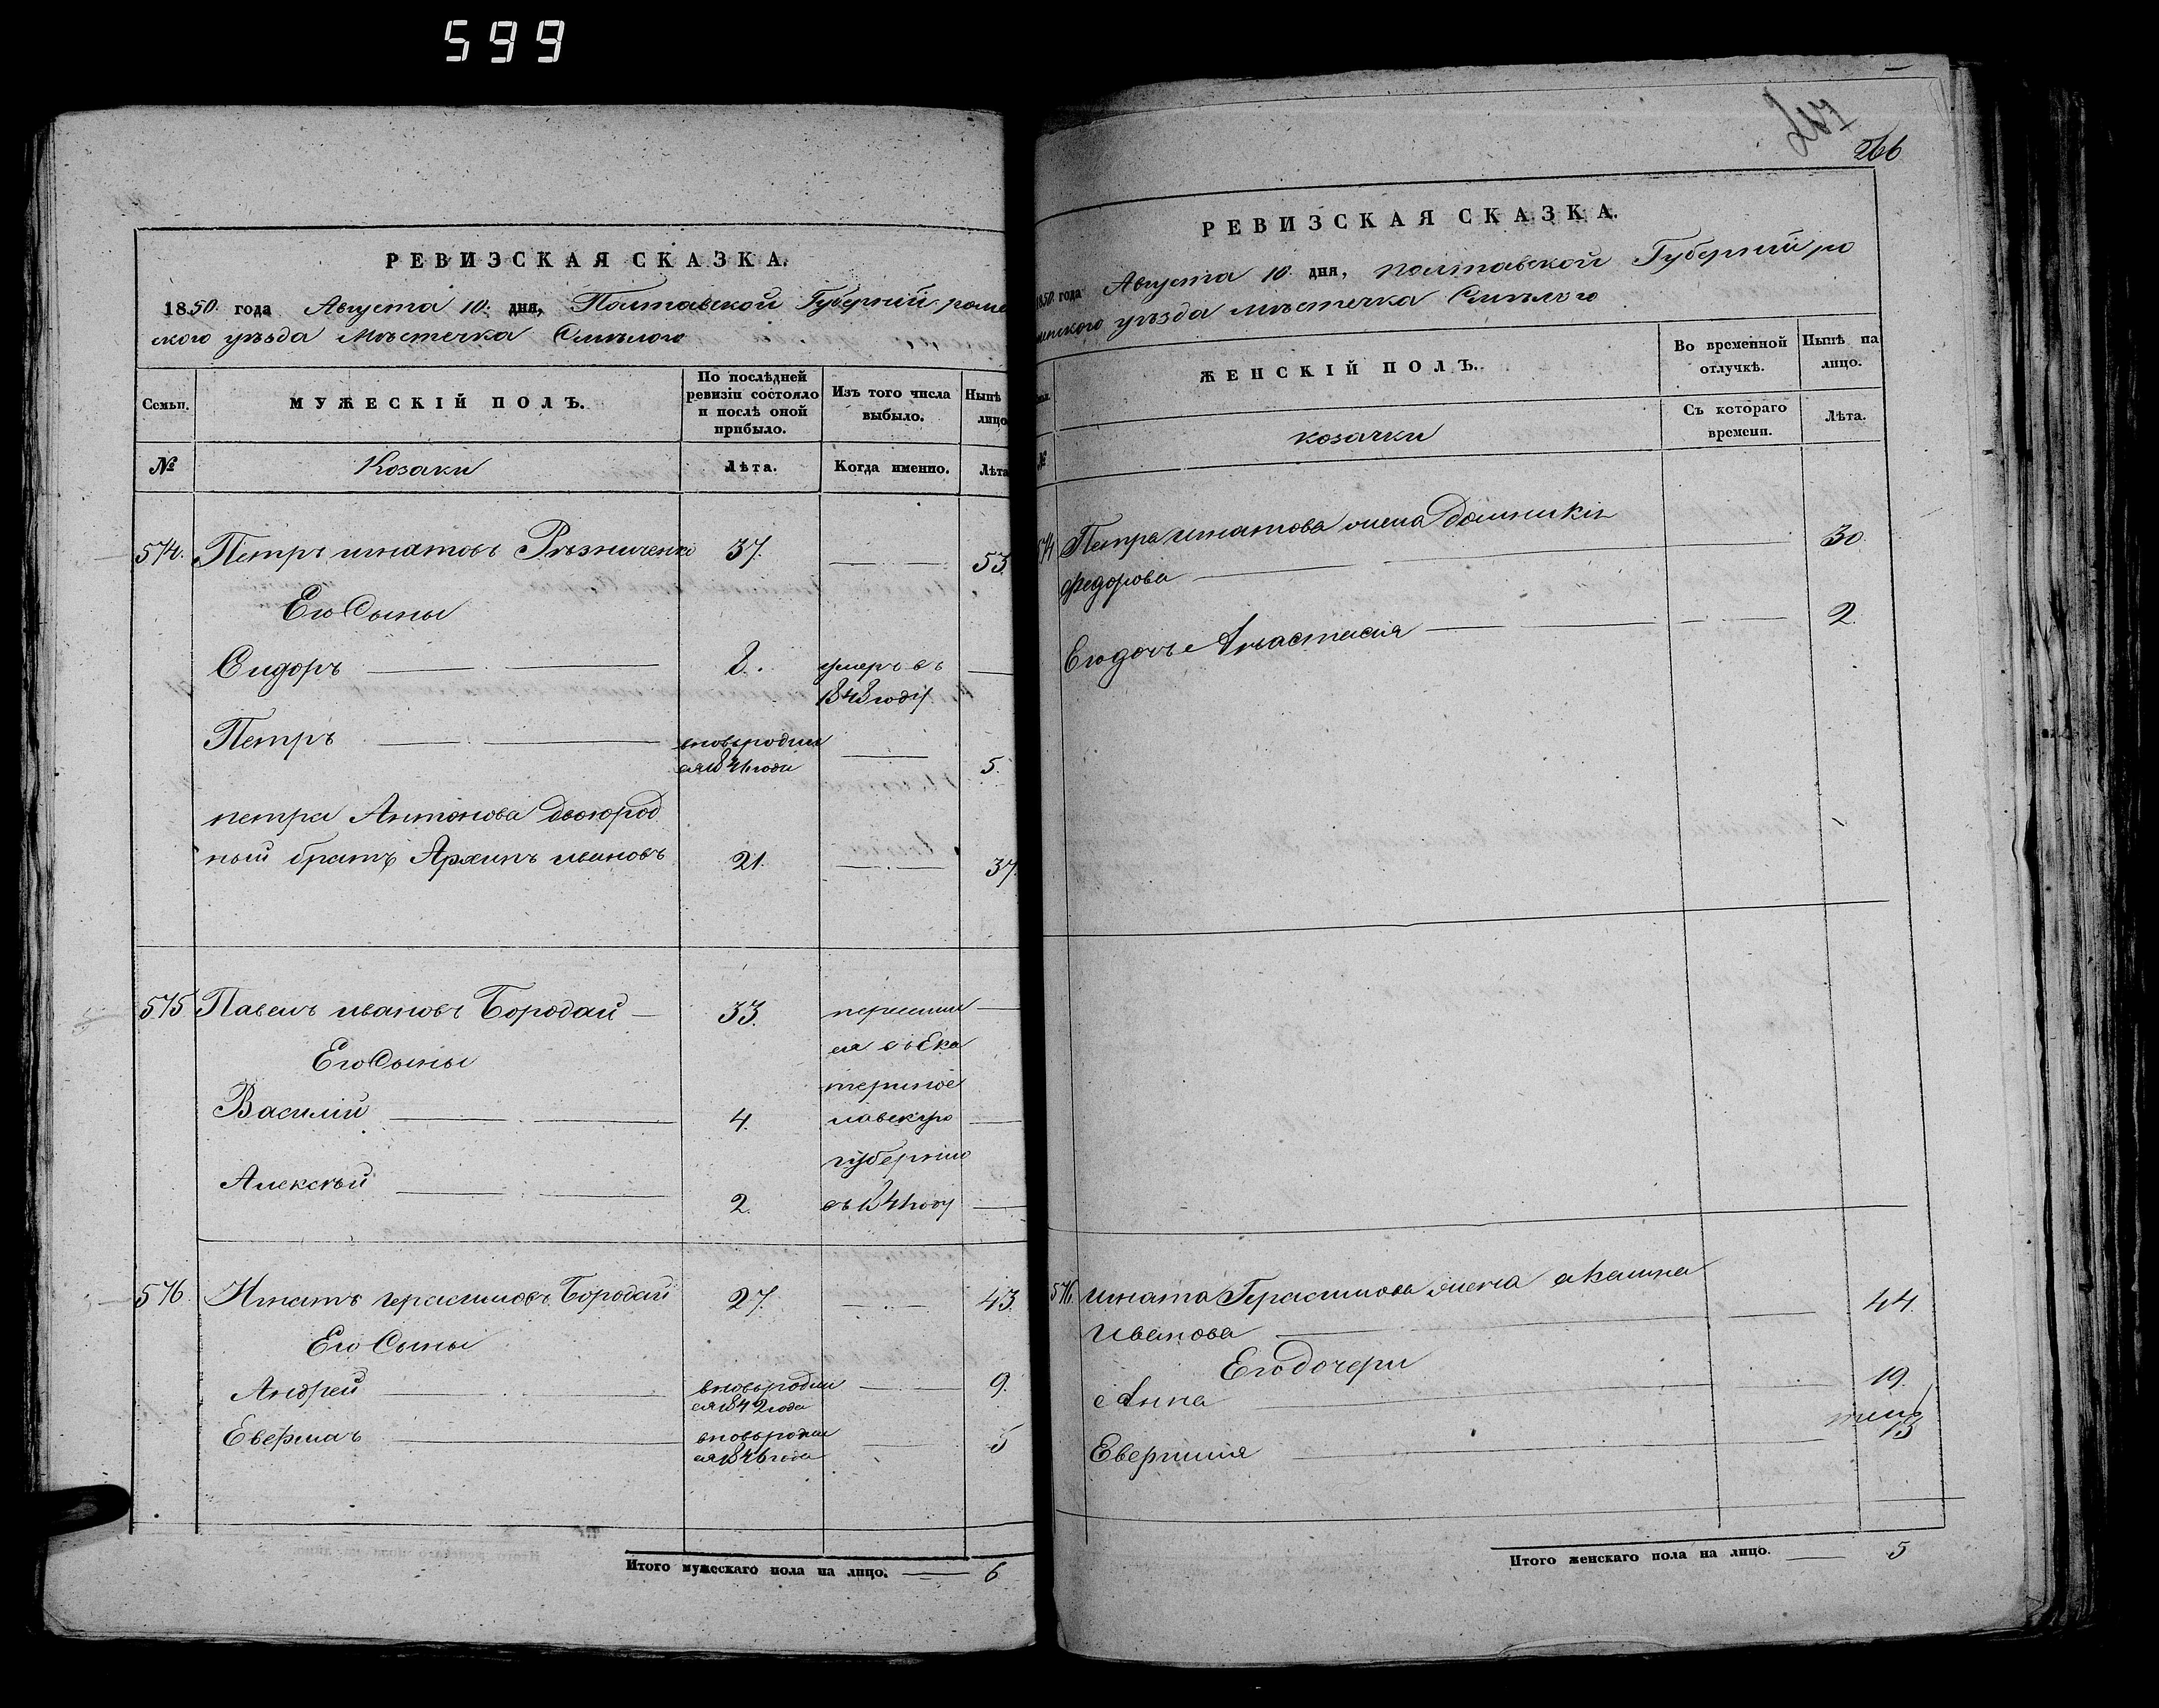 599
РЕВИЗСКАЯ СКАЗКА.
1850. года Августа 10. дня, Полтавской Губерніи роме
ского уѣзда Мѣстечка Смѣлого
Семьи.
МУЖЕСКІЙ ПОЛЪ.
По послѣдней ревизіи состояло и послѣ оной прибыло.
Изъ того числа выбыло.
Нынѣ лицо
№
Козаки
Лѣта.
Когда именно.
Лѣта
574. Петръ игнатовъ Рѣзниченко 37. 53.
Его Сыны
Сидоръ 8. умеръ въ
1848 году
Петръ вновьродил
ся 1846 года 5.
петра Антонова двоюрод
ный братъ Архипъ ивановъ 21. 37.
575 Павелъ ивановъ Бородай 33. переселил
Его Сыны ся въ Ека
теринос
Василій 4. лавскую
губернію
Алексѣй 2. въ 1841 году
576. Игнатъ герасимовъ Бородай 27. 43.
Его Сыны
Андрей вновьродил
ся 1842 года 9.
Евфимъ вновьродил
ся 1846 года 5
Итого мужескаго пола на лицо. 6
247
266
РЕВИЗСКАЯ СКАЗКА.
1850. года Августа 10. дня, полтавской Губерніи ро
менского уѣзда мѣстечка Смѣлого
ЖЕНСКІЙ ПОЛЪ.
Во временной отлучкѣ.
Нынѣ на лицо.
№
козачки
Съ котораго времени.
Лѣта.
574 Петра игнатова жена Домникія
федорова 30.
Его дочь Анастасия 2.
576. игната Герасимова жена акелина
иванова 44.
Его дочери
Анна 19.
Евгенія 13
Итого женскаго пола на лицо. 5